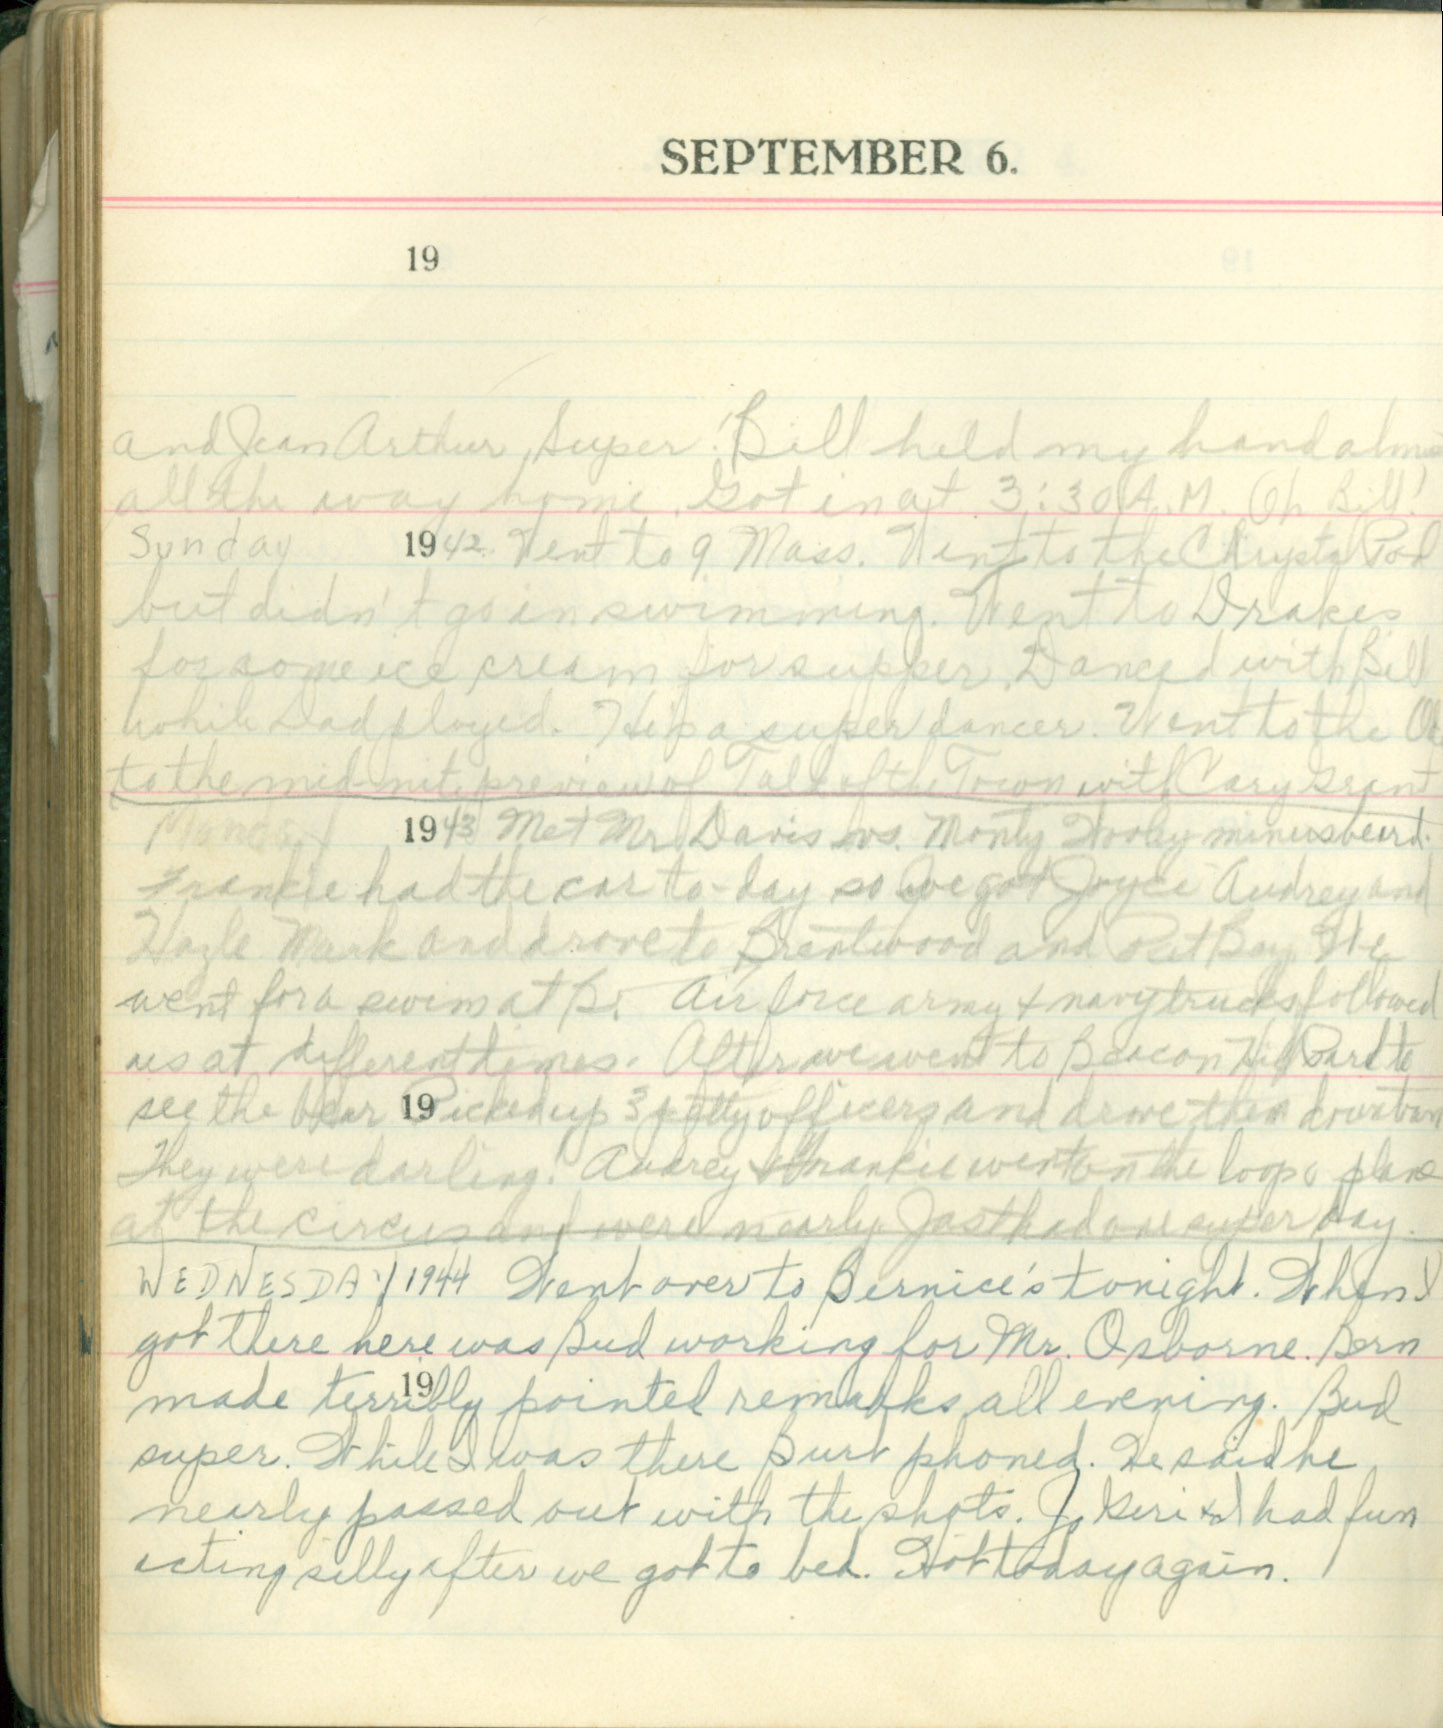 SEPTEMBER 6.
19
and Jean Arthur, Super! Bill held my hand
all the way home. Got in at 3:30 A.M. Oh Bill!
Sunday 1942 Went to 9 Mass. Went to the Chrystal
but didn't go in swimming. Went to Drakes
for some ice cream for supper. Danced with Bill
while Dad played. He's a super dancer. Went to the
to the mid-nite preview of Talk of the Town with Cary Grant
Monday 1943 Met Mr. Davis vs. Monty Wooley minus beard.
Frankie had the car to-day so we got Joyce Audrey and
Mark and drove to Brentwood and Pat Bay. We
went for a swim at B. Air force army & navy trucks followed
us at different times. After we went to Beacon Hill Park to
see the bear 19 Picked up 3 petty officers and drove them downtown
They were darling! Audrey & Frankie went on the loop o plane
at the circus and were nearly Just had one super day.
WEDNESDAY 1944 Went over to Bernice's tonight. When I
got there here was Bud working for Mr. Osborne. Bern
19
made terribly pointed remarks all evening. Bud
super. While I was there Burt phoned. He said he
nearly passed out with the shots. Jo Geri & I had fun
acting silly after we got to bed. Hot today again.